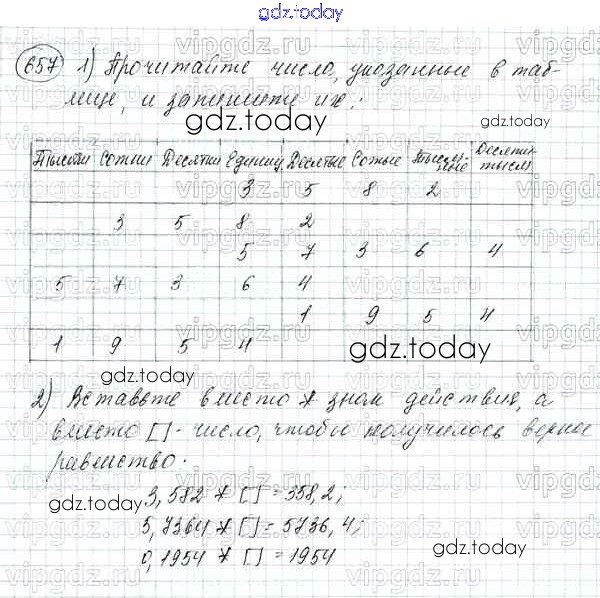 gdz.today
657 1) Прочитайте числа, указанные в таб-
лице, и запишите их:
gdz.today
gdz.today
Тысячи Сотни Десятки Единиц. Десятые Сотые Тысяч-ные Десятит. тысяч
3 5 8 2
3 5 8 2
5 7 3 6 4
5 7 3 6 4
1 9 5 4
1 9 5 4
gdz.today
gdz.today
2) Вставьте вместо * знак действия, а
вместо [] - число, чтобы получилось верное
равенство.
3,582 * [] = 358,2;
gdz.today
5,7364 * [] = 5736,4;
0,1954 * [] = 1954
gdz.today